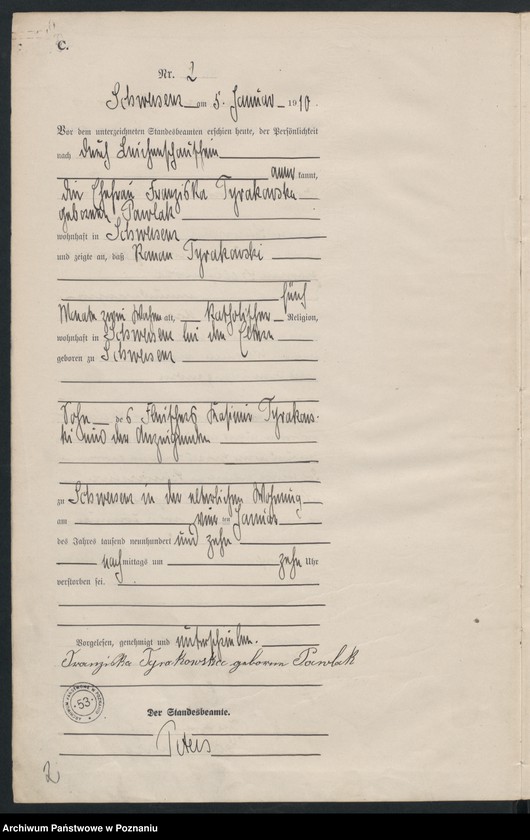 C.
Nr. 2
Schwersenz am 5. Januar 1910
Vor dem unterzeichneten Standesbeamten erschien heute, der Persönlichkeit
nach durch Leichenschauschein
anerkannt,
die Ehefrau Franziska Tyrakowska
geborene Pawlak
wohnhaft in Schwersenz
und zeigte an, daß Roman Tyrakowski
fünf
Monate zwei Wochen alt, katholischer Religion,
wohnhaft in Schwersenz bei den Eltern
geboren zu Schwersenz
Sohn des Fleischers Kasimir Tyrakows-
ki und der Anzeigenden
zu Schwersenz in der elterlichen Wohnung
am vier ten Januar
des Jahres tausend neunhundert und zehn
nach mittags um zehn Uhr
verstorben sei.
Vorgelesen, genehmigt und unterschrieben.
Franziska Tyrakowska geborene Pawlak
Der Standesbeamte.
53
2
Archiwum Państwowe w Poznaniu